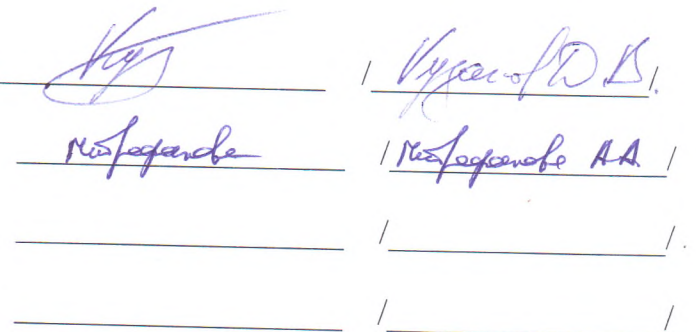 / Кузанов Д В. /
Митрофанова / Митрофанова А.А. /
/ /.
/ /